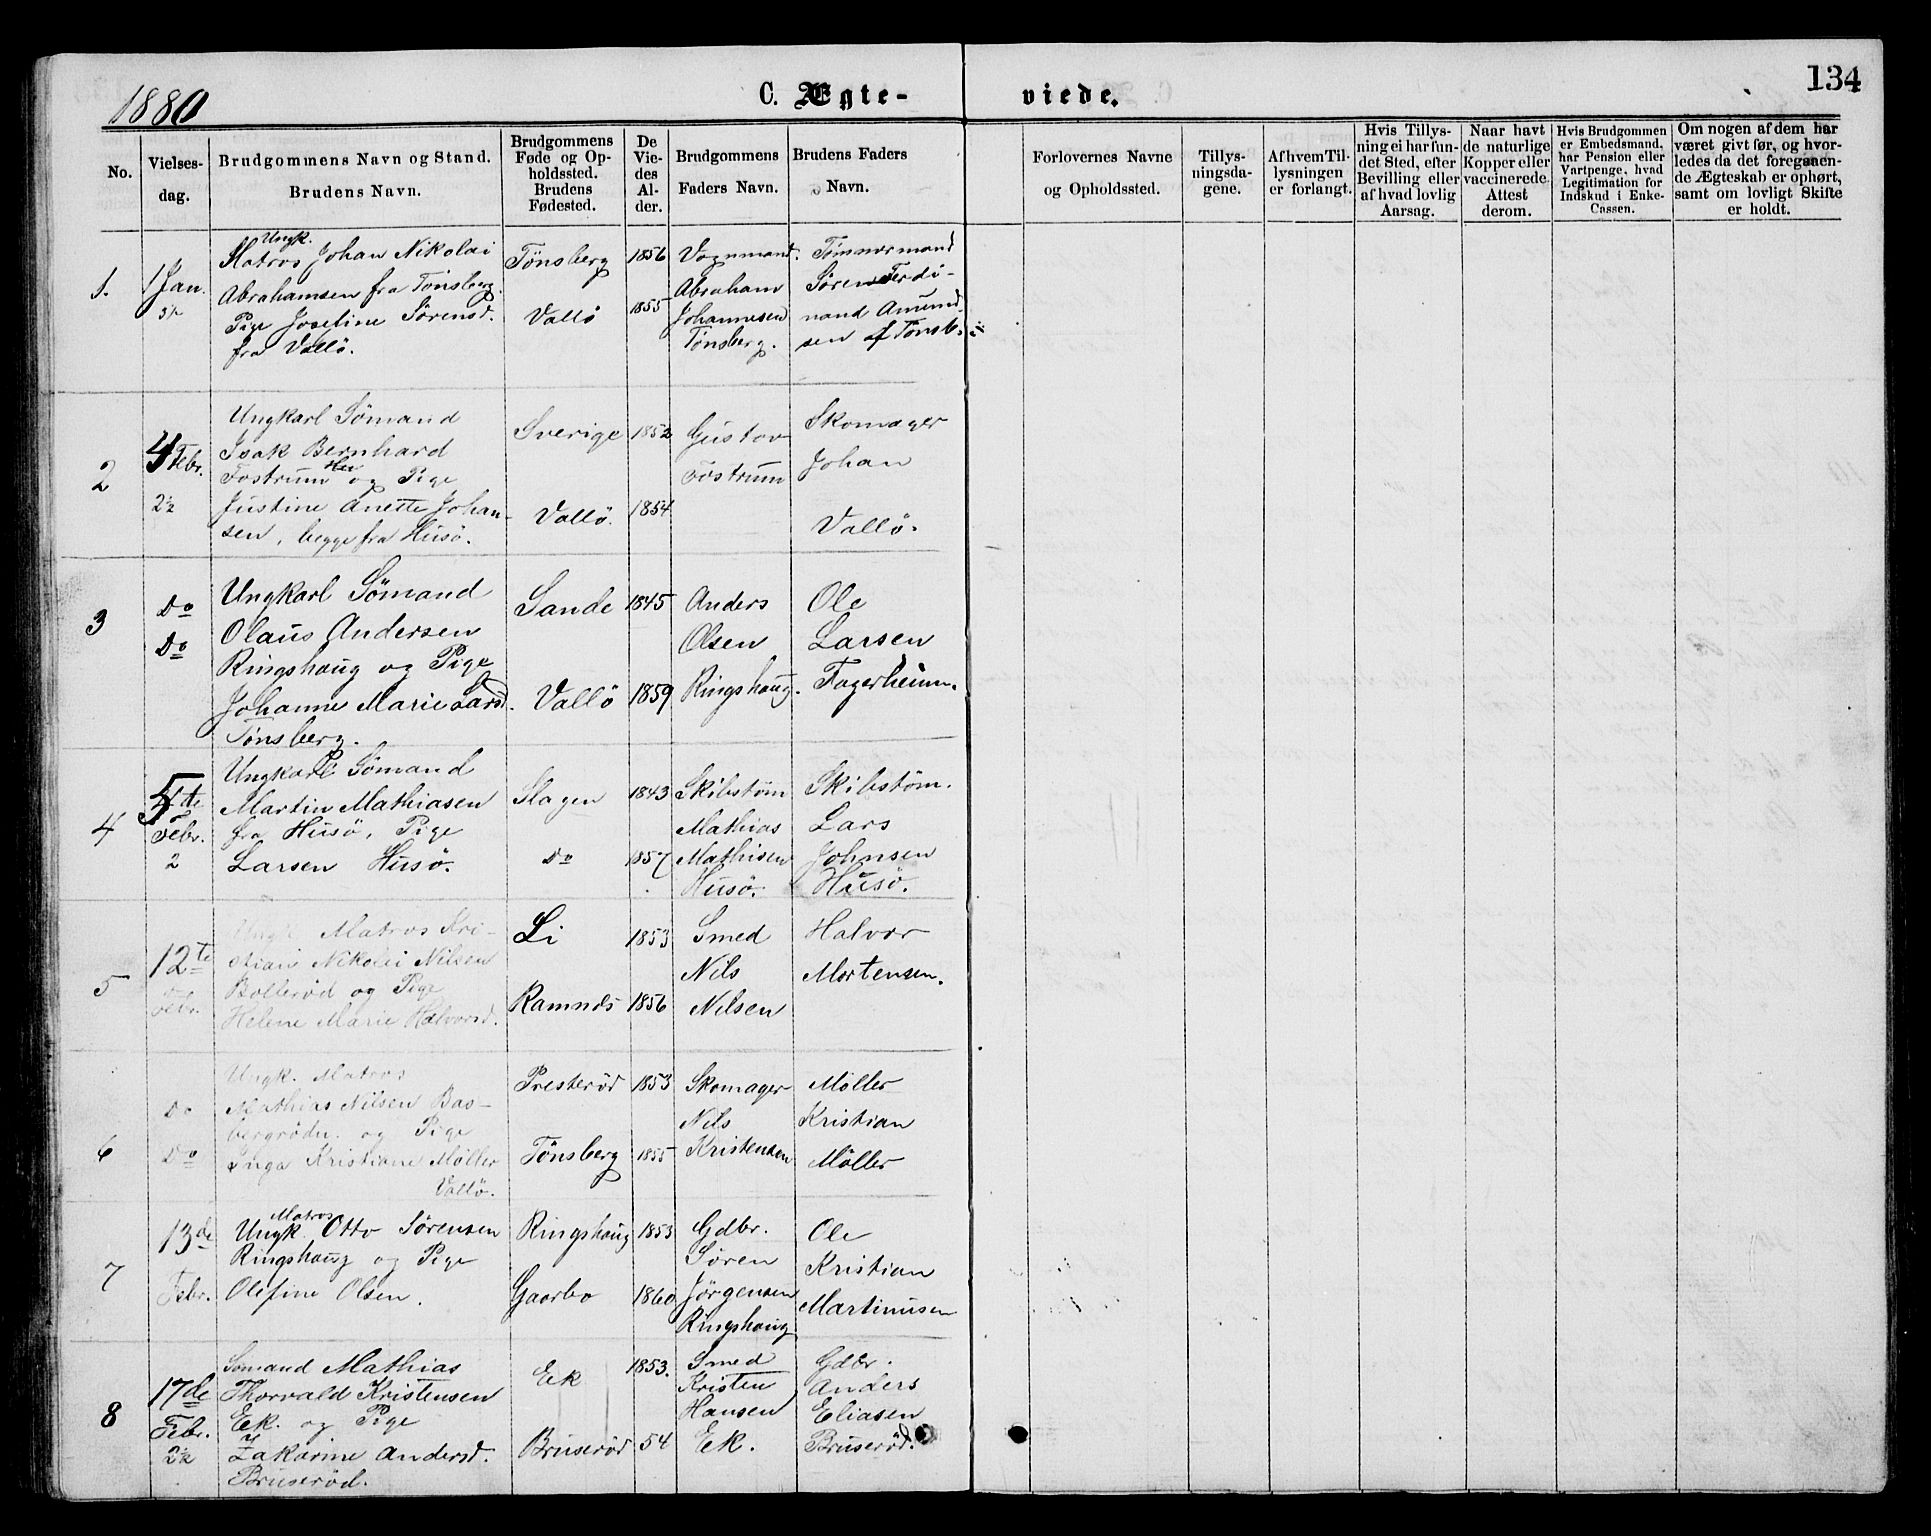 1880
C. Ægte-
viede.
134
No.
Vielses-
dag.
Brudgommens Navn og Stand.
Brudens Navn.
Brudgommens
Føde og Op-
holdssted.
Brudens
Fødested.
De
Vie-
des
Al-
der.
Brudgommens
Faders Navn.
Brudens Faders
Navn.
Forlovernes Navne
og Opholdssted.
Tillys-
ningsda-
gene.
Af hvem Til-
lysningen
er forlangt.
Hvis Tillys-
ning ei har fun-
det Sted, efter
Bevilling eller
af hvad lovlig
Aarsag.
Naar havt
de naturlige
Kopper eller
vaccinerede.
Attest
derom.
Hvis Brudgommen
er Embedsmand,
har Pension eller
Vartpenge, hvad
Legitimation for
Indskud i Enke-
Cassen.
Om nogen af dem har
været givt før, og hvor-
ledes da det foregaaen-
de Ægteskab er ophørt,
samt om lovligt Skifte
er holdt.
1.
1 Jan.
Ungk.
Matros Johan Nikolai
Abrahamsen fra Tönsberg.
Pige Josefine Sörensd.
fra Vallö.
Tönsberg
Vallö
1856
1855
Vognmand.
Abraham
Johannesen
Tönsberg.
Tömmermand
Sören Ferdi-
nand Amund-
sen af Tönsb.
2
4 Febr.
2½
Ungkarl Sömand
Isak Bernhard
Fostrum og Pige
Justine Anette Johan-
sen, begge fra Husö.
Sverige
Vallö.
1852
1854
Gustav
Fostrum
Skomager
Johan
Vallö.
3
Do
Do
Ungkarl Sömand
Olaus Andersen
Ringshaug og Pige
Johanne Marie Larsd.
Tönsberg.
Sande
Vallö
1845
1859
Anders
Olsen
Ringshaug.
Ole
Larsen
Fagerheim.
4
5te
Febr.
2
Ungkarl Sömand
Martin Mathiasen
fra Husö, Pige
Larsen Husö.
Slagen
Do
1843
1857
Skibstöm
Mathias
Mathisen
Husö.
Skibstöm.
Lars
Johnsen
Husö.
5
12te
Febr.
Ungk. Matros Kri-
stian Nikolai Nilsen
Bollerød og Pige
Helene Marie Halvorsd.
Li
Ramnæs
1853
1856
Smed
Nils
Nilsen
Halvor
Mortensen.
6
Do
Do
Ungk. Matros
Mathias Nilsen Bas-
bergröðn. og Pige
Inga Kristiane Möller
Vallö.
Presterød
Tönsberg
1853
1855
Skomager
Nils
Kristensen
Möller
Kristian
Möller
7
13de
Febr.
Matros
Ungk. Otto Sörensen
Ringshaug og Pige
Olefine Olsen.
Ringshaug
Gaarbo
1853
1860
Gdbr.
Sören
Jörgensen
Ringshaug
Ole
Kristian
Martinusen
8
17de
Febr.
2½
Sömand Mathias
Thorvald Kristensen
Ek. og Pige
Zakarine Andersd.
Bruserød.
Ek
Bruserød
1853.
54
Smed
Kristen
Hansen
Ek.
Gdbr.
Anders
Eliasen
Bruserød.